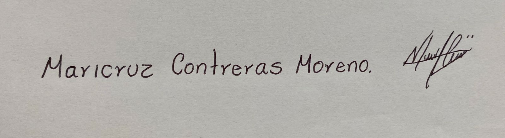 Maricruz Contreras Moreno.